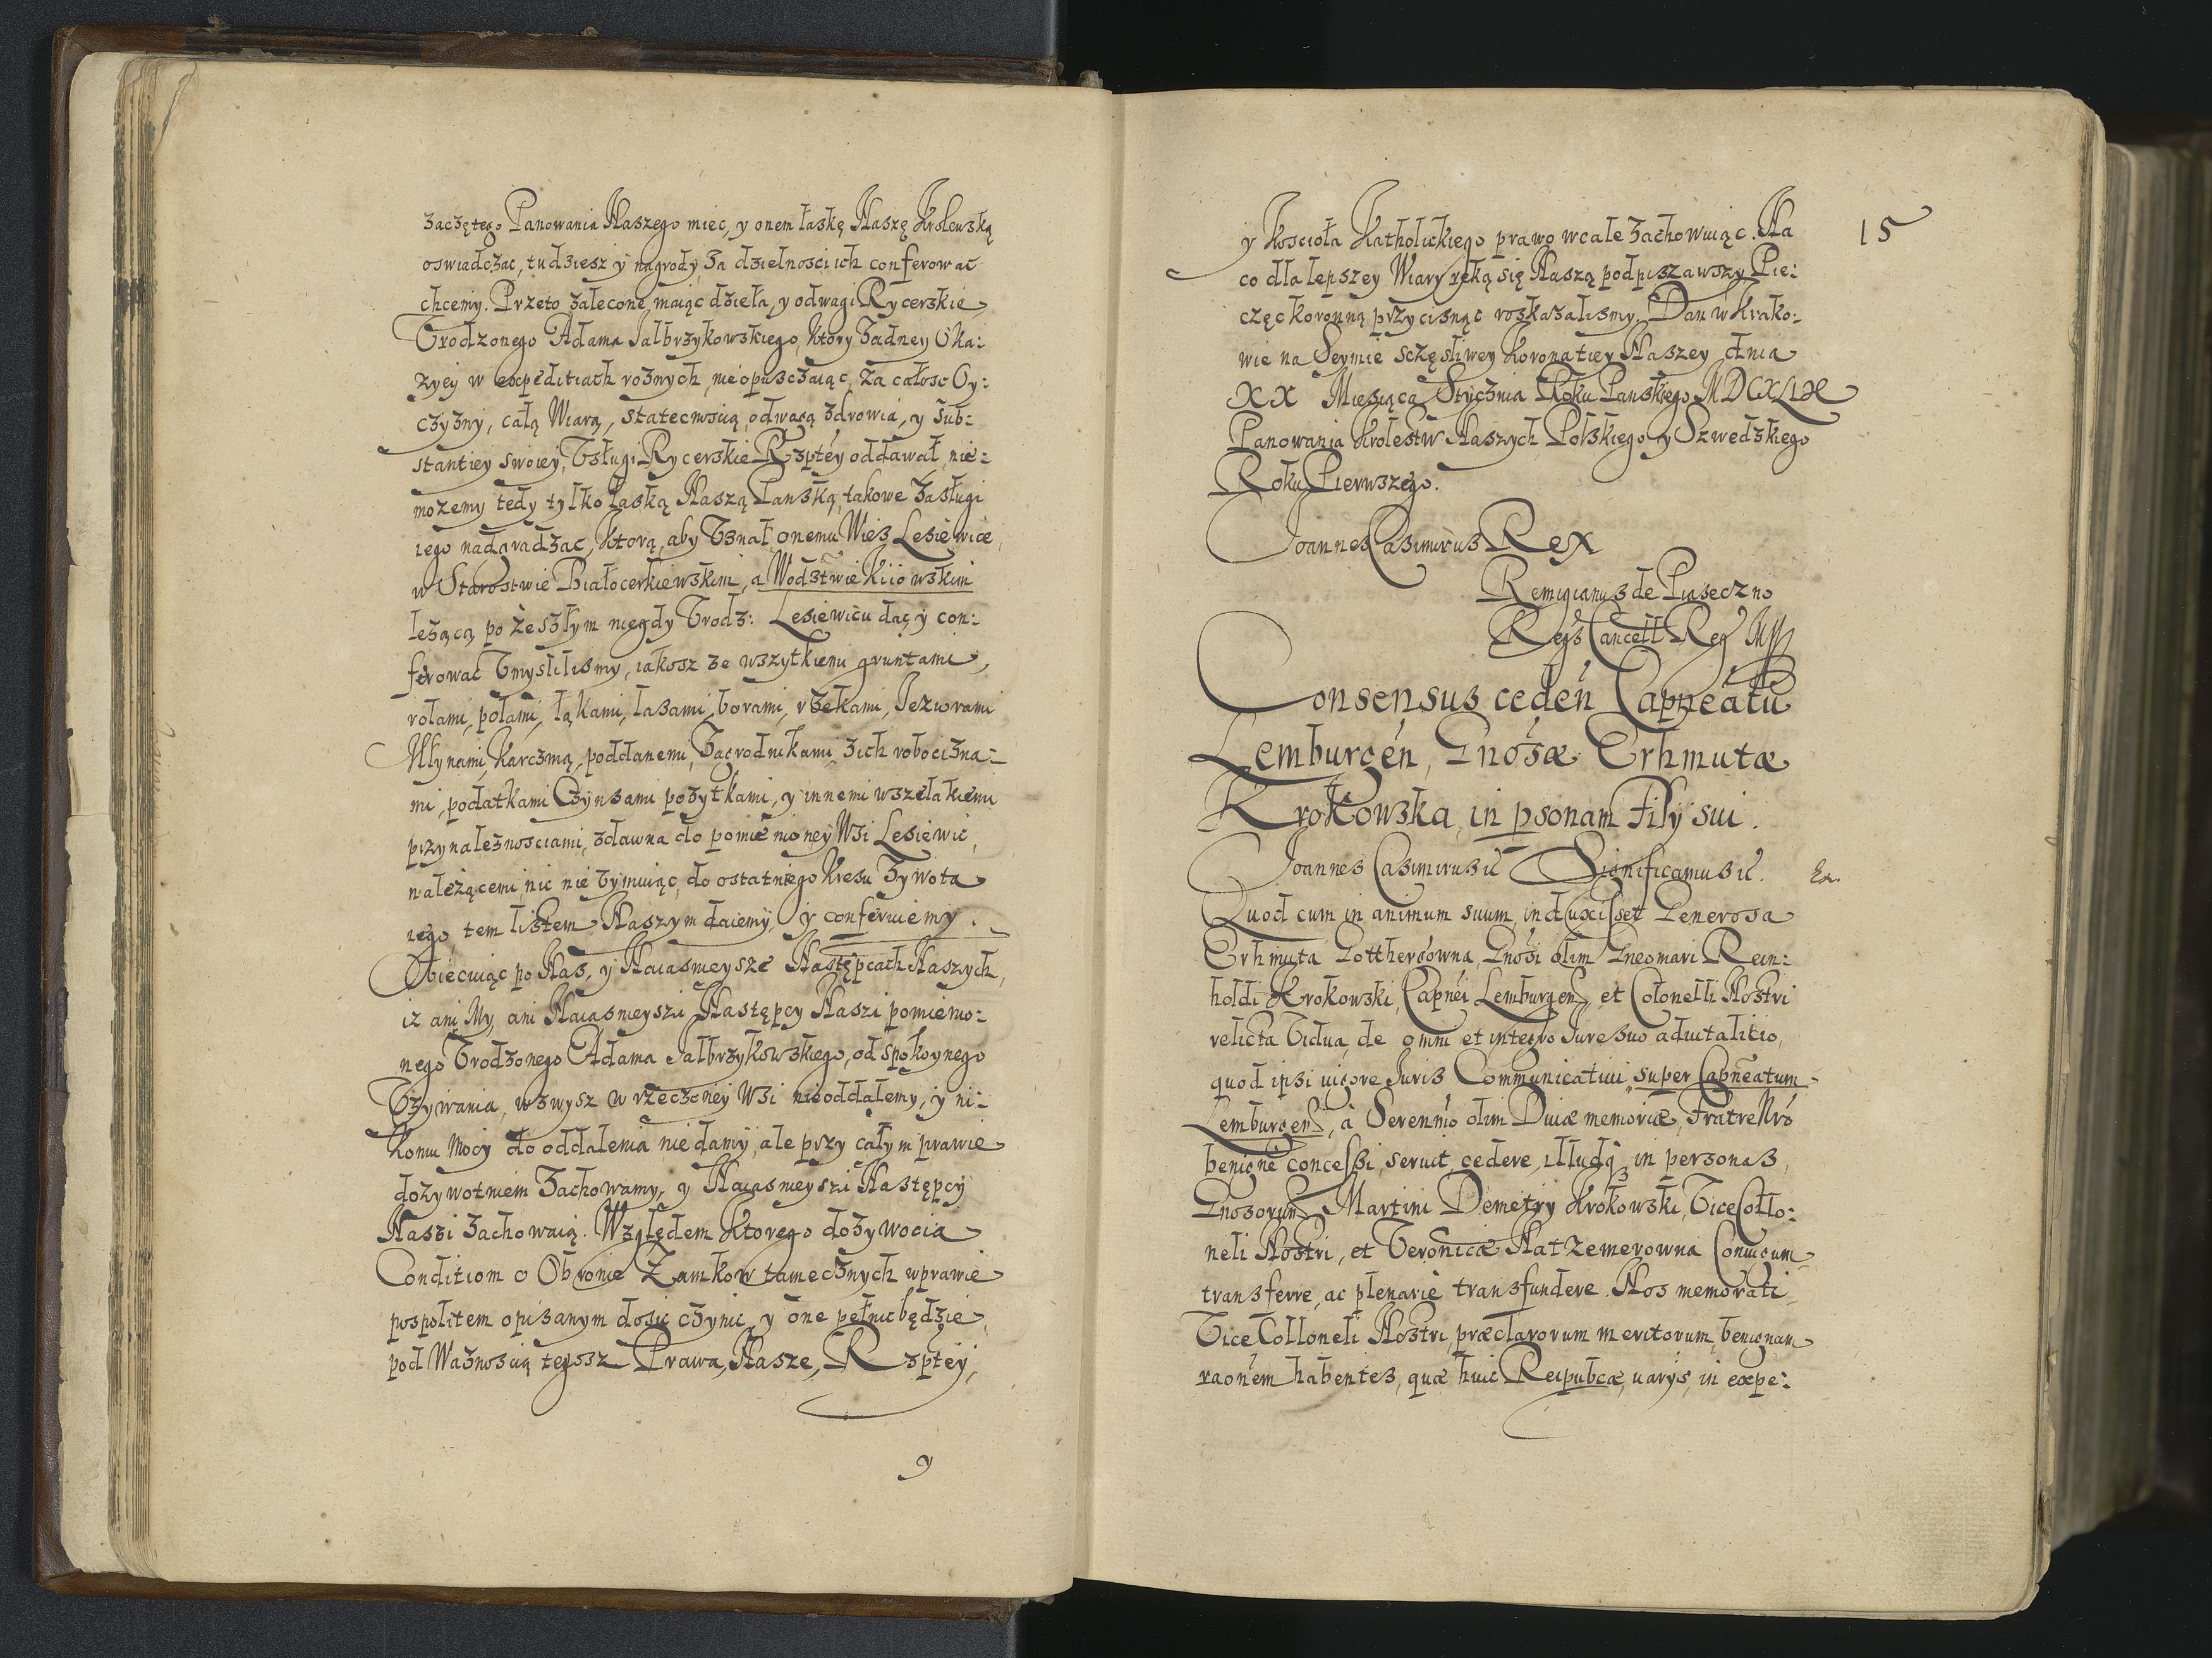 zaczętego Panowania Naszego miec, y onem łaskę Naszę Krolewską
oswiadczac, tudziesz y nagrody, za dzielnosci ich conferowac
chcemy. Przeto zalecone maiąc dzieła, y odwagi Rycerskie
Vrodzonego Adama Jalbrzykowskiego, ktory żadney Oka:
zyey w expeditiach roznych, nieopusczaiąc, za całosc Oy:
czyzny, całą Wiarą, statecznoscią, odwagą zdrowia, y sub:
stantiey swoiey, Vsługi Rycerskie Rzptey oddawał, nie:
mozemy tedy tylko łaską Naszą Panską, takowe zasługi
iego nadgradzac, ktorą, aby Vznał onemu Wies Lesiewice,
w Starostwie Białocerkiewskim, a Wodztwie Kiiowskim
lezącą po zeszłym niegdy Vrodz: Lesiewicu dac y con:
ferowac Vmyslilismy, iakosz ze wszytkiemi gruntami,
rolami, polami, łąkami, lasami, borami, rzekami, Jeziorami
Młynami, karczmą, poddanemi, Zagrodnikami, z ich robocizna:
mi, podatkami Czynszami pozytkami, y innemi wszelakiemi
przynaleznosciami, zdawna do pomienioney Wsi Lesiewic,
nalezącemi, nic nie Vymuiąc, do ostatniego kresu Zywota
iego, tem listem Naszym daiemy, y conferuiemy.
Obiecuiąc po Nas, y Naiasnieysze Następcach Naszych,
iz ani My, ani Naiasnieyszi Następcy Naszi pomienio:
nego Vrodzonego Adama Jalbrzykowskiego, od spokoynego
Vzywania, wzwysz w rzeczoney Wsi nieoddalemy, y ni:
komu mocy do oddalenia niedamy, ale przy całym prawie
dozywotniem Zachowamy, y Naiasnieyszi Następcy
Naszi zachowaią. Względem ktorego dozywocia
Conditiom o Obronie Zamkow tamecznych w prawie
pospolitem opisanym dosic czynic, y one pełnic będzie,
pod Waznoscią tegosz Prawa, Nasze, Rzptey,
y
15
y Koscioła Katholickiego prawo wcale zachowuiąc. Na
co dla lepszey Wiary ręką się Naszą podpiszawszy Pie:
częc koronną przycisnąc roskazalismy. Dan w Krako:
wie na Seymie sczęsliwey Koronatiey Naszey dnia
XX Miesiąca Stycznia Roku Panskiego MDCXLIX
Panowania Krolestw Naszych Polskiego y Szwedzkiego
Roku Pierwszego.
Joannes Casimirus Rex
Remigianus de Piaseczno
Consensus cedeń Capneatu
Lemburgeń, Gnosæ Erhmutæ
Krokowska, in psonam Filÿ sui.
Joannes Casimirus Significamus
Quod cum in animum suum induxisset Generosa
Erhmuta Gotthergowna, Gnosi olim Gneomari Rein:
holdi Krokowski, Capnei Lemburgen, et Colonelli Nostri
relicta Vidua, de omni et integro Jure suo aduitalitio,
quod ipsi uigore Juris Communicatiui super Capneatum
Lemburgen, à Serenmo olim Diuæ memoriæ, Fratre Nro
benigne concessi, seruit, cedere, illudq; in personas,
Gnosorum Martini Demetrÿ Krokowski, Vice Collo:
neli Nostri, et Veronicæ Natzemerowna Coniugum
transferre, ac plenariè transfundere. Nos memorati
Vice Colloneli Nostri, præclarorum meritorum, benignam
raonem habentes, quæ huic Reipubcæ, uarÿs, in expe: